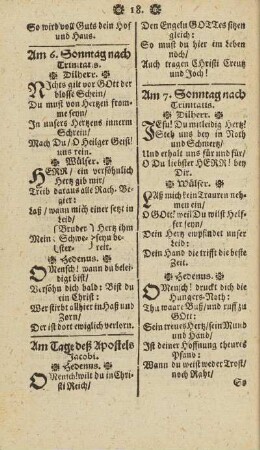 18.
So wird voll Guts dein Hof
und Haus.
Am 6. Sonntag nach
Trinitatis.
Dilherr.
Nichts gilt vor GOtt der
blosse Schein/
Du must von Hertzen from-
me seyn/
In unsers Hertzens innerm
Schrein/
Mach Du/ O Heilger Geist!
uns rein.
Wülfer.
HERR/ ein versöhnlich
Hertz gib mir/
Treib daraus alle Rach-Be-
gier:
Laß/ wann mich einer setzt in
Leid/
Mein Bruder Hertz ihm
Schwe- seyn be-
ster reit.
Hedenus.
O Mensch! wann du belei-
digt bist/
Versöhn dich bald: Bist du
ein Christ:
Wer stirbt allhier in Haß und
Zorn/
Der ist dort ewiglich verlorn.
Am Tage deß Apostels
Jacobi.
Hedenus.
O Mensch! wilt du in Chri-
sti Reich/
Den Engeln GOTTes sitzen
gleich:
So must du hier im Leben
noch/
Auch tragen Christi Creutz
und Joch!
Am 7. Sonntag nach
Trinitatis.
Dilherr.
JEsu! Du mitleidig Hertz!
Steh uns bey in Noth
und Schmertz/
Und erhalt uns für und für/
O Du liebster HERR! bey
Dir.
Wülfer.
Laß mich kein Trauren neh-
men ein/
O GOtt! weil Du wilst Helf-
fer seyn/
Dein Hertz empfindet unser
Leid:
Dein Hand die trifft die beste
Zeit.
Hedenus.
O Mensch! druckt dich die
Hungers-Noth:
Thu waare Buß/ und ruff zu
GOtt:
Sein treues Hertz/ sein Mund
und Hand/
Ist deiner Hoffnung theures
Pfand:
Wann du weist weder Trost/
noch Raht/
So